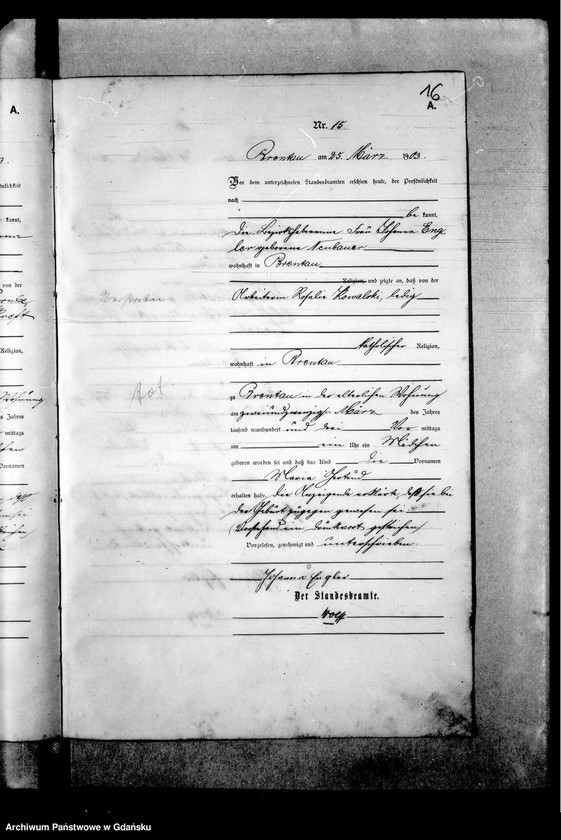 A.
16
A.
Nr. 15
Brentau am 25. März 1903.
Vor dem unterzeichneten Standesbeamten erschien heute, der Persönlichkeit
nach
be kannt,
die Bezirkshebamme Frau Johanna Eng
ler geborene Neubauer
wohnhaft in Brentau
Religion, und zeigte an, daß von der
Arbeiterin Rosalie Kowalski, ledig
Verstorben
katholischer Religion,
wohnhaft in Brentau
tot
zu Brentau in der elterlichen Wohnung
am zweiundzwanzigsten März des Jahres
tausend neunhundert und drei Vor mittags
um ein Uhr ein Mädchen
geboren worden sei und daß das Kind die Vornamen
Maria Gertrud
erhalten habe. Die Anzeigende erklärt, daß sie bei
der Geburt zugegen gewesen sei
Vorstehend ein Druckwort gestrichen
Vorgelesen, genehmigt und unterschrieben
Johanna Engler
Der Standesbeamte.
Wolff
Archiwum Państwowe w Gdańsku